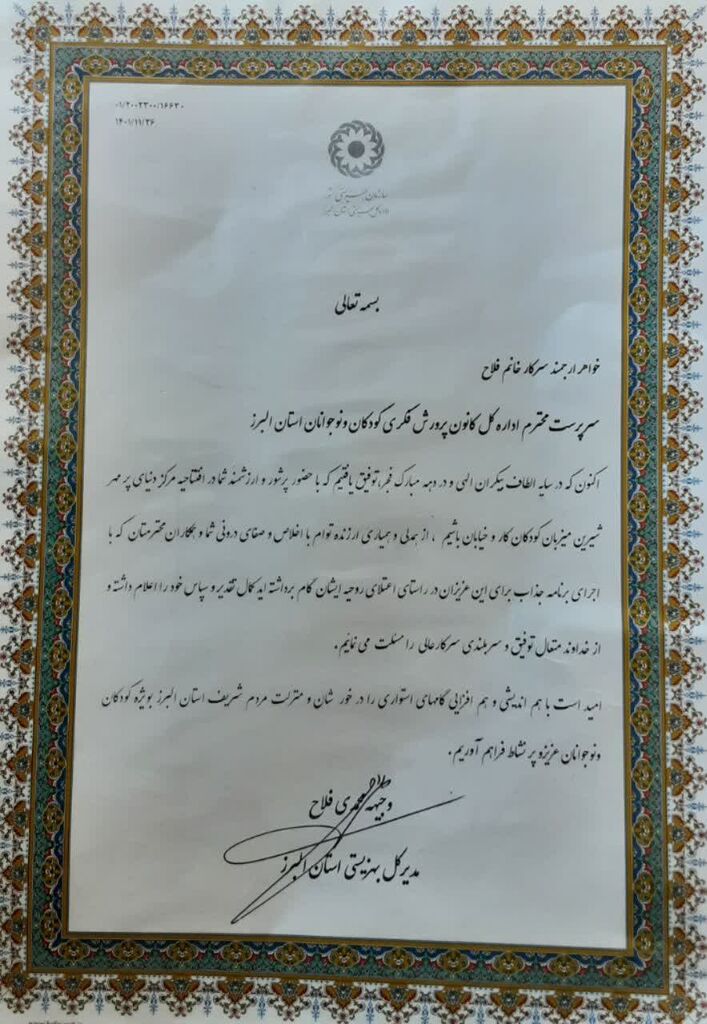 ۰۱/۲۰۰۲۳۰۰/۱۶۶۳۰
۱۴۰۱/۱۱/۲۶
سازمان بهزیستی کشور
اداره کل بهزیستی استان البرز
بسمه تعالی
خواهر ارجمند سرکار خانم فلاح
سرپرست محترم اداره کل کانون پرورش فکری کودکان ونوجوانان استان البرز
اکنون که در سایه الطاف بیکران الهی و در دهه مبارک فجر، توفیق یافتیم که با حضور پرشور و ارزشمند شما در افتتاحیه مرکز دنیای پر مهر
شیرین میزبان کودکان کار و خیابان باشیم ، از همدلی و همیاری ارزنده توام با اخلاص و صفای درونی شما و همکاران محترمتان که با
اجرای برنامه جذاب برای این عزیزان در راستای اعتلای روحیه ایشان گام برداشته اید کمال تقدیر و سپاس خود را اعلام داشته و
از خداوند متعال توفیق و سربلندی سرکارعالی را مسئلت می نمائیم.
امید است با هم اندیشی و هم افزایی گامهای استواری را در خور شان و منزلت مردم شریف استان البرز بویژه کودکان
ونوجوانان عزیزو پر نشاط فراهم آوریم.
وجیهه محمدی فلاح
مدیرکل بهزیستی استان البرز